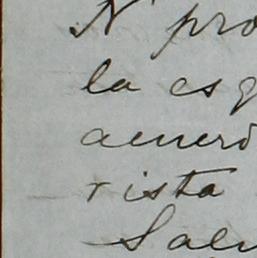 N pro
la esq
acuerd
rista
Salu